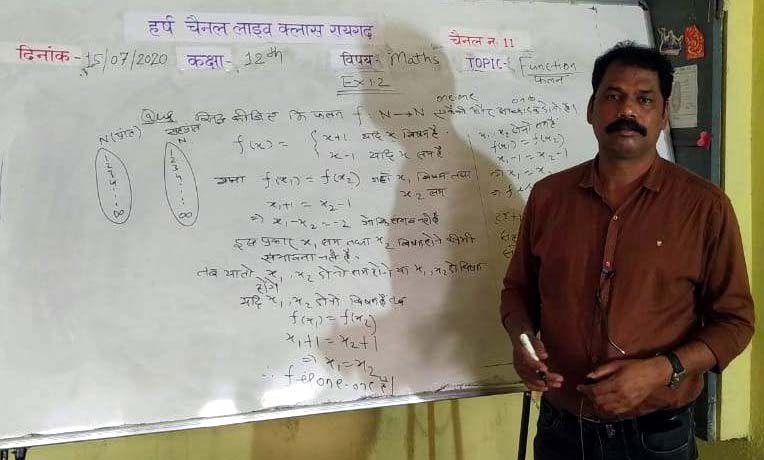 हर्ष चैनल लाइव क्लास रायगढ़
चैनल न. 11
दिनांक - 15/07/2020 कक्षा - 12th विषय - Maths TOPIC - Function
फलन
Ex 1.2
one-one onto
Que सिद्ध कीजिए कि फलन f: N→N एकैकी और आच्छादक है।
N(प्रांत) सहप्रांत
N
1 2 3 4 ∞
1 2 3 4 ∞
f(x) = { x+1 यदि x विषम है
x-1 यदि x सम है
माना f(x₁) = f(x₂) जहाँ x₁ विषम तथा
x₂ सम
x₁+1 = x₂-1
⇒ x₁-x₂ = -2 जो कि
इस प्रकार x₁ सम तथा x₂ विषम होने की भी
संभावना नहीं है.
तब या तो x₁, x₂ दोनों सम होंगे या x₁, x₂ दो विषम
होंगे
यदि x₁, x₂ दोनों विषम है तब
f(x₁) = f(x₂)
x₁+1 = x₂+1
⇒ x₁ = x₂
∴ f one-one है।
x₁, x₂ दोनों सम है
f(x₁) = f(x₂)
x₁-1 = x₂-1
⇒ x₁ = x₂